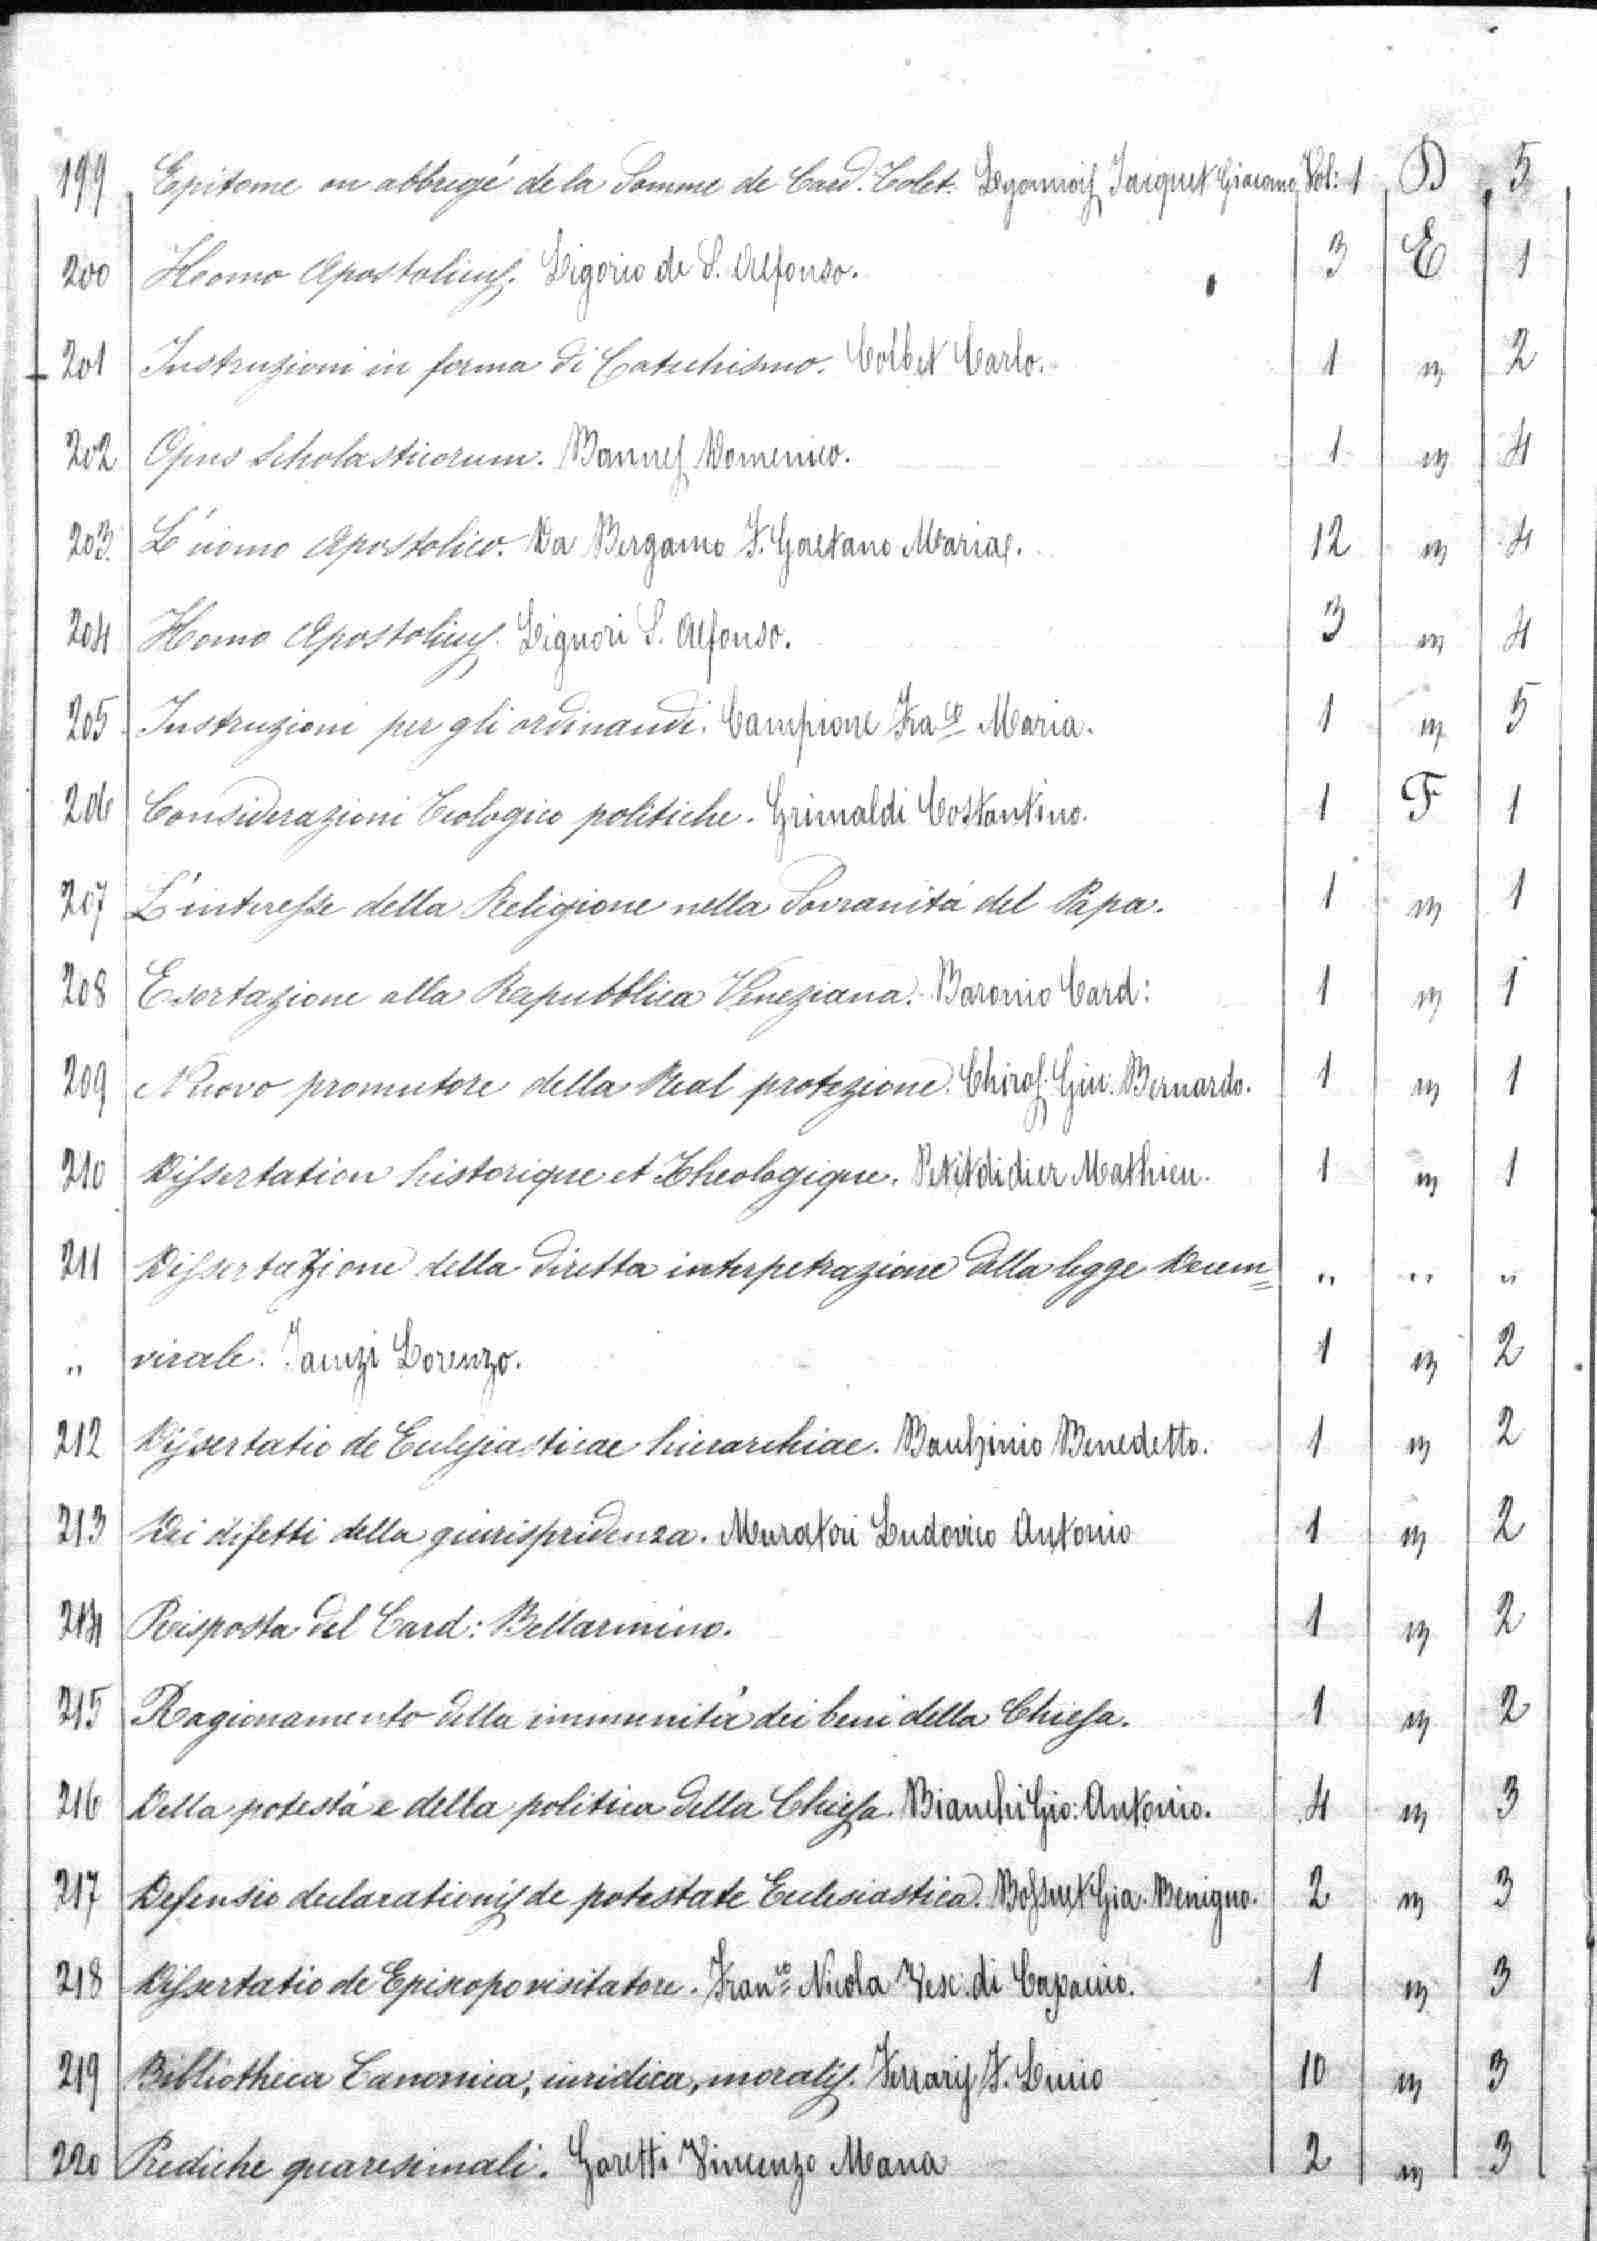 199 Epitome ou abbregé de la Somme de Card. Tolet. Jacquet Giacomo Vol: 1 D 5
200 Homo Apostolicus. Ligorio de S. Alfonso. 3 E 1
201 Instruzioni in forma di Catechismo. Colbet Carlo. 1 " 2
202 Opus Scholasticorum. Bannes Domenico. 1 " 4
203 L'uomo Apostolico. Da Bergamo F. Gaetano Maria. 12 " 4
204 Homo Apostolicus. Liguori S. Alfonso. 3 " 4
205 Instruzioni per gli ordinandi. Campione Fra.co Maria. 1 " 5
206 Considerazioni Teologico politiche. Grimaldi Costantino. 1 F 1
207 L'interesse della Religione nella Sovranitá del Papa. 1 " 1
208 Esortazione alla Repubblica Veneziana. Baronio Card: 1 " 1
209 Nuovo promutore della Real protezione. Giu. Bernardo. 1 " 1
210 Dissertation historique et Theologique. Petitdidier Mathieu. 1 " 1
211 Dissertazione della diretta interpetrazione della legge Decem= " " "
" virale. Lorenzo. 1 " 2
212 Dissertatio de Eclesiasticae hierarchiae. Benedetto. 1 " 2
213 Dei difetti della giurisprudenza. Muratori Ludovico Antonio 1 " 2
214 Risposta del Card: Bellarmino. 1 " 2
215 Ragionamento della immunitá dei beni della Chiesa. 1 " 2
216 Della potestá e della politica della Chiesa. Bianchi Gio: Antonio. 4 " 3
217 Defensio declarationis de potestate Eclesiastica. Bossuet Gia. Benigno. 2 " 3
218 Dissertatio de Episcopo visitatore. Fran.co Nicola Vesc: di Capacio. 1 " 3
219 Bibliotheca Canonica, iuridica, moralis. Ferraris F. Lucio 10 " 3
220 Prediche quaresimali. Goretti Vincenzo Maria 2 " 3